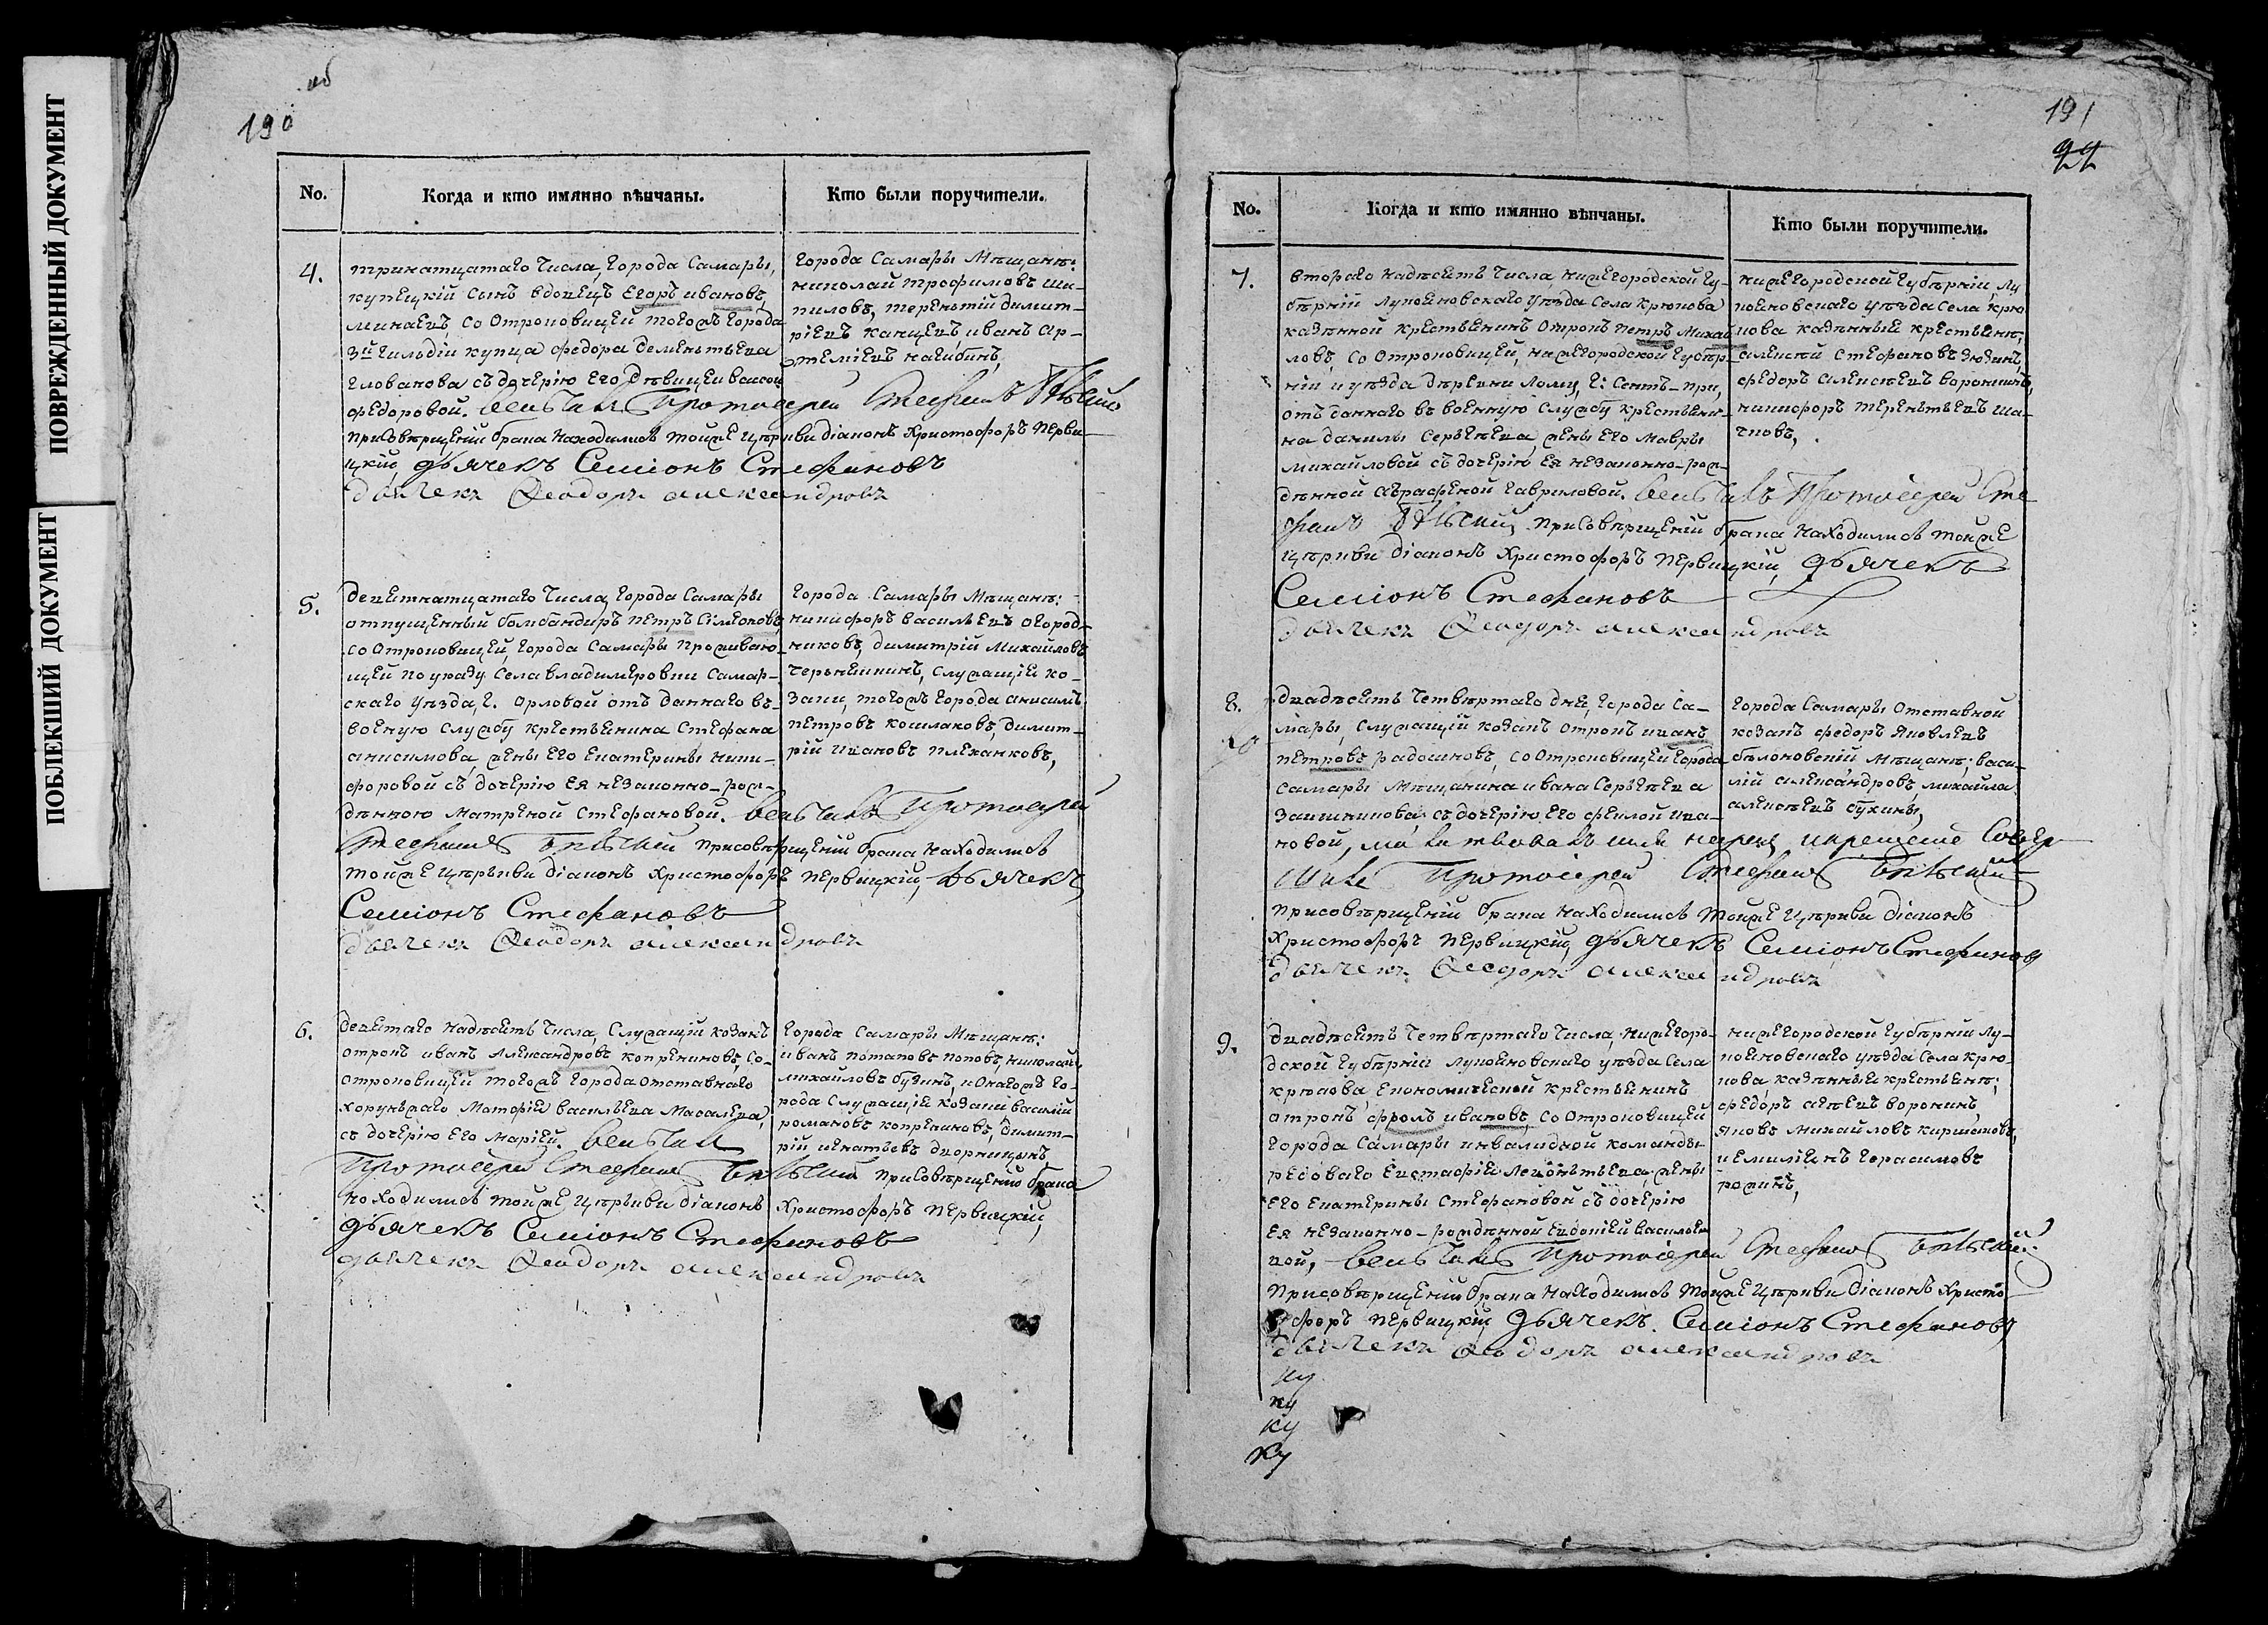 ПОВРЕЖДЕННЫЙ ДОКУМЕНТ
ПОБЛЕКШИЙ ДОКУМЕНТ
об
190
No.
Когда и кто имянно вѣнчаны.
Кто были поручители.
4.
тринатцатаго Числа, Города Самары,
купецкій Сынъ вдовецъ Егоръ ивановъ
минаевъ со Отроковицей тогожъ Города
3й гильдіи купца федора дементьева
Головачова съ дочерію его дѣвицеи
федоровой. венчалъ Протоіерей Стефанъ Бѣльский
присовѣршеніи брака находились тойже церкви діаконъ Христофоръ Перви-
цкій, дьячекъ Семіонъ Стефановъ
дьячекъ Феодоръ Александровъ
Города Самары Мѣщанѣ:
николай трофимовъ ши-
пиловъ, терентій димит-
ріевъ канцевъ, иванъ Ар-
темьевъ нагибинъ,
5.
девятнатцатаго Числа, Города Самары
отпущенный бомбандиръ петръ Симеоновъ,
со Отроковицей, Города Самары проживаю-
щей по указу Села владимеровки Самар-
скаго уезда, Г. Орловой отъ даннаго въ
военую службу крестьянина Стефана
анисимова, жены его Екатерины ники-
форовой съ дочерію ея незаконно-рож-
дѣнною матреной Стефановой. венчалъ Протоіерей
Стефанъ Бѣльский присовѣршеніи брака находились
тойже церкви діаконъ Христофоръ Первицкій, дьячекъ
Семіонъ Стефановъ
дьячекъ Феодоръ Александровъ
Города Самары Мѣщанѣ:
никифоръ васильевъ огород-
никовъ, димитрій михайловъ
Черькешинъ, Служащіи ко-
заки, тогожъ Города анисимъ
петровъ кошлаковъ, димит-
рій ивановъ плеханковъ,
6.
девятаго надесять Числа, Служащіи козакъ
отрокъ иванъ Александровъ копрениковъ, со-
отроковицей тогожъ Города отставнаго
хорунжаго Матфия васильева Масалева,
съ дочерію его Маріей. венчалъ
Протоіерей Стефанъ Бѣльский присовѣршеніи брака
находились тойже церкви діаконъ Христофоръ Первицкій,
дьячекъ Семіонъ Стефановъ
дьячекъ Феодоръ Александровъ
Города Самары Мѣщанѣ:
иванъ потаповъ поповъ, николай
михайловъ бузинъ, и Онагожъ Го-
рода Служащіи козаки василій
романовъ копрениковъ, димит-
рій игнатьевъ дворницынъ
191
No.
Когда и кто имянно вѣнчаны.
Кто были поручители.
7.
второго надесять Числа, нижегородской Гу-
берніи Лукояновскаго уезда Села Крюкова
казѣнной крестьянинъ отрокъ петръ Михай
ловъ, со отроковицей, нижегородской Губер-
ніи и уезда деревни Лому,
отъ даннаго въ военную Службу крестьяни-
на данилы Сергеева, жены его мавры
михайловой съ дочерію ея незаконно-рож-
дѣнной аграфеной гавриловой. венчалъ Протоіерей Сте
фанъ Бѣльский, присовѣршеніи брака находились тойже
церкви діаконъ Христофоръ Первицкій, дьячекъ
Семіонъ Стефановъ
дьячекъ Феодоръ Александровъ
нижегородской Губерніи, Лу
кояновскаго уезда Села Крю
кова казѣнныя крестьянѣ,
алексѣй Стефановъ зюзинъ,
федоръ алексѣевъ воронинъ,
никифоръ терентьевъ ша-
тновъ,
8.
двадесять Четвертаго дня, Города Са-
мары, Служащій козакъ отрокъ иванъ
петровъ радошновъ, со отроковицей Города
Самары Мѣщанина ивана Сергеева
Заишникова, съ дочерію его феклой ива-
новой, молитвовалъ имя нарекъ, и крещеніе Совер-
шилъ Протоіерей Стефанъ Бѣльский
присовѣршеніи брака находились тойже церкви діаконъ
Христофоръ Первицкій, дьячекъ Семіонъ Стефановъ
дьячекъ Феодоръ Александровъ
Города Самары отставной
козакъ федоръ Яковлевъ
бѣлоновскій мѣщанѣ; васи-
лій александровъ, михайла
алексѣевъ бухины,
9.
двадесять Четвертаго Числа, нижегоро-
дской Губерніи Лукояновскаго уезда Села
крюкова, Економическй крестьянинъ
отрокъ фролъ ивановъ, со отроковицей
Города Самары инвалидной команды
редоваго Евстафия Леонтьева, жены
его Екатерины Стефановой съ дочерію
ея незаконно-рождѣнной Евдокіей васильев
ной, венчалъ Протоіерей Стефанъ Бѣльский
присовѣршеніи брака находились тойже церкви діаконъ Христо
форъ Первицкій, дьячекъ Семіонъ Стефановъ
дьячекъ Феодоръ Александровъ
нижегородской Губерніи Лу-
кояновскаго уезда Села Крю-
кова казѣнныя крестьянѣ;
федоръ воронинъ,
яковъ михайловъ киршановъ,
и емилиянъ Герасимовъ
рожинъ,
ку
ку
ку
ку